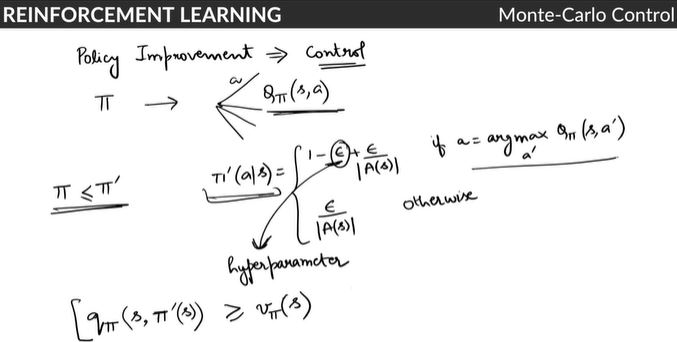 REINFORCEMENT LEARNING
Monte-Carlo Control
Policy Improvement ⇒ Control
π → a Q_π(s,a)
π'(a|s) = { 1 - ϵ + ϵ/|A(s)| if a = argmax_{a'} Q_π(s,a')
ϵ/|A(s)| otherwise
π ≤ π'
hyperparameter
[ q_π(s, π'(s)) ≥ v_π(s)